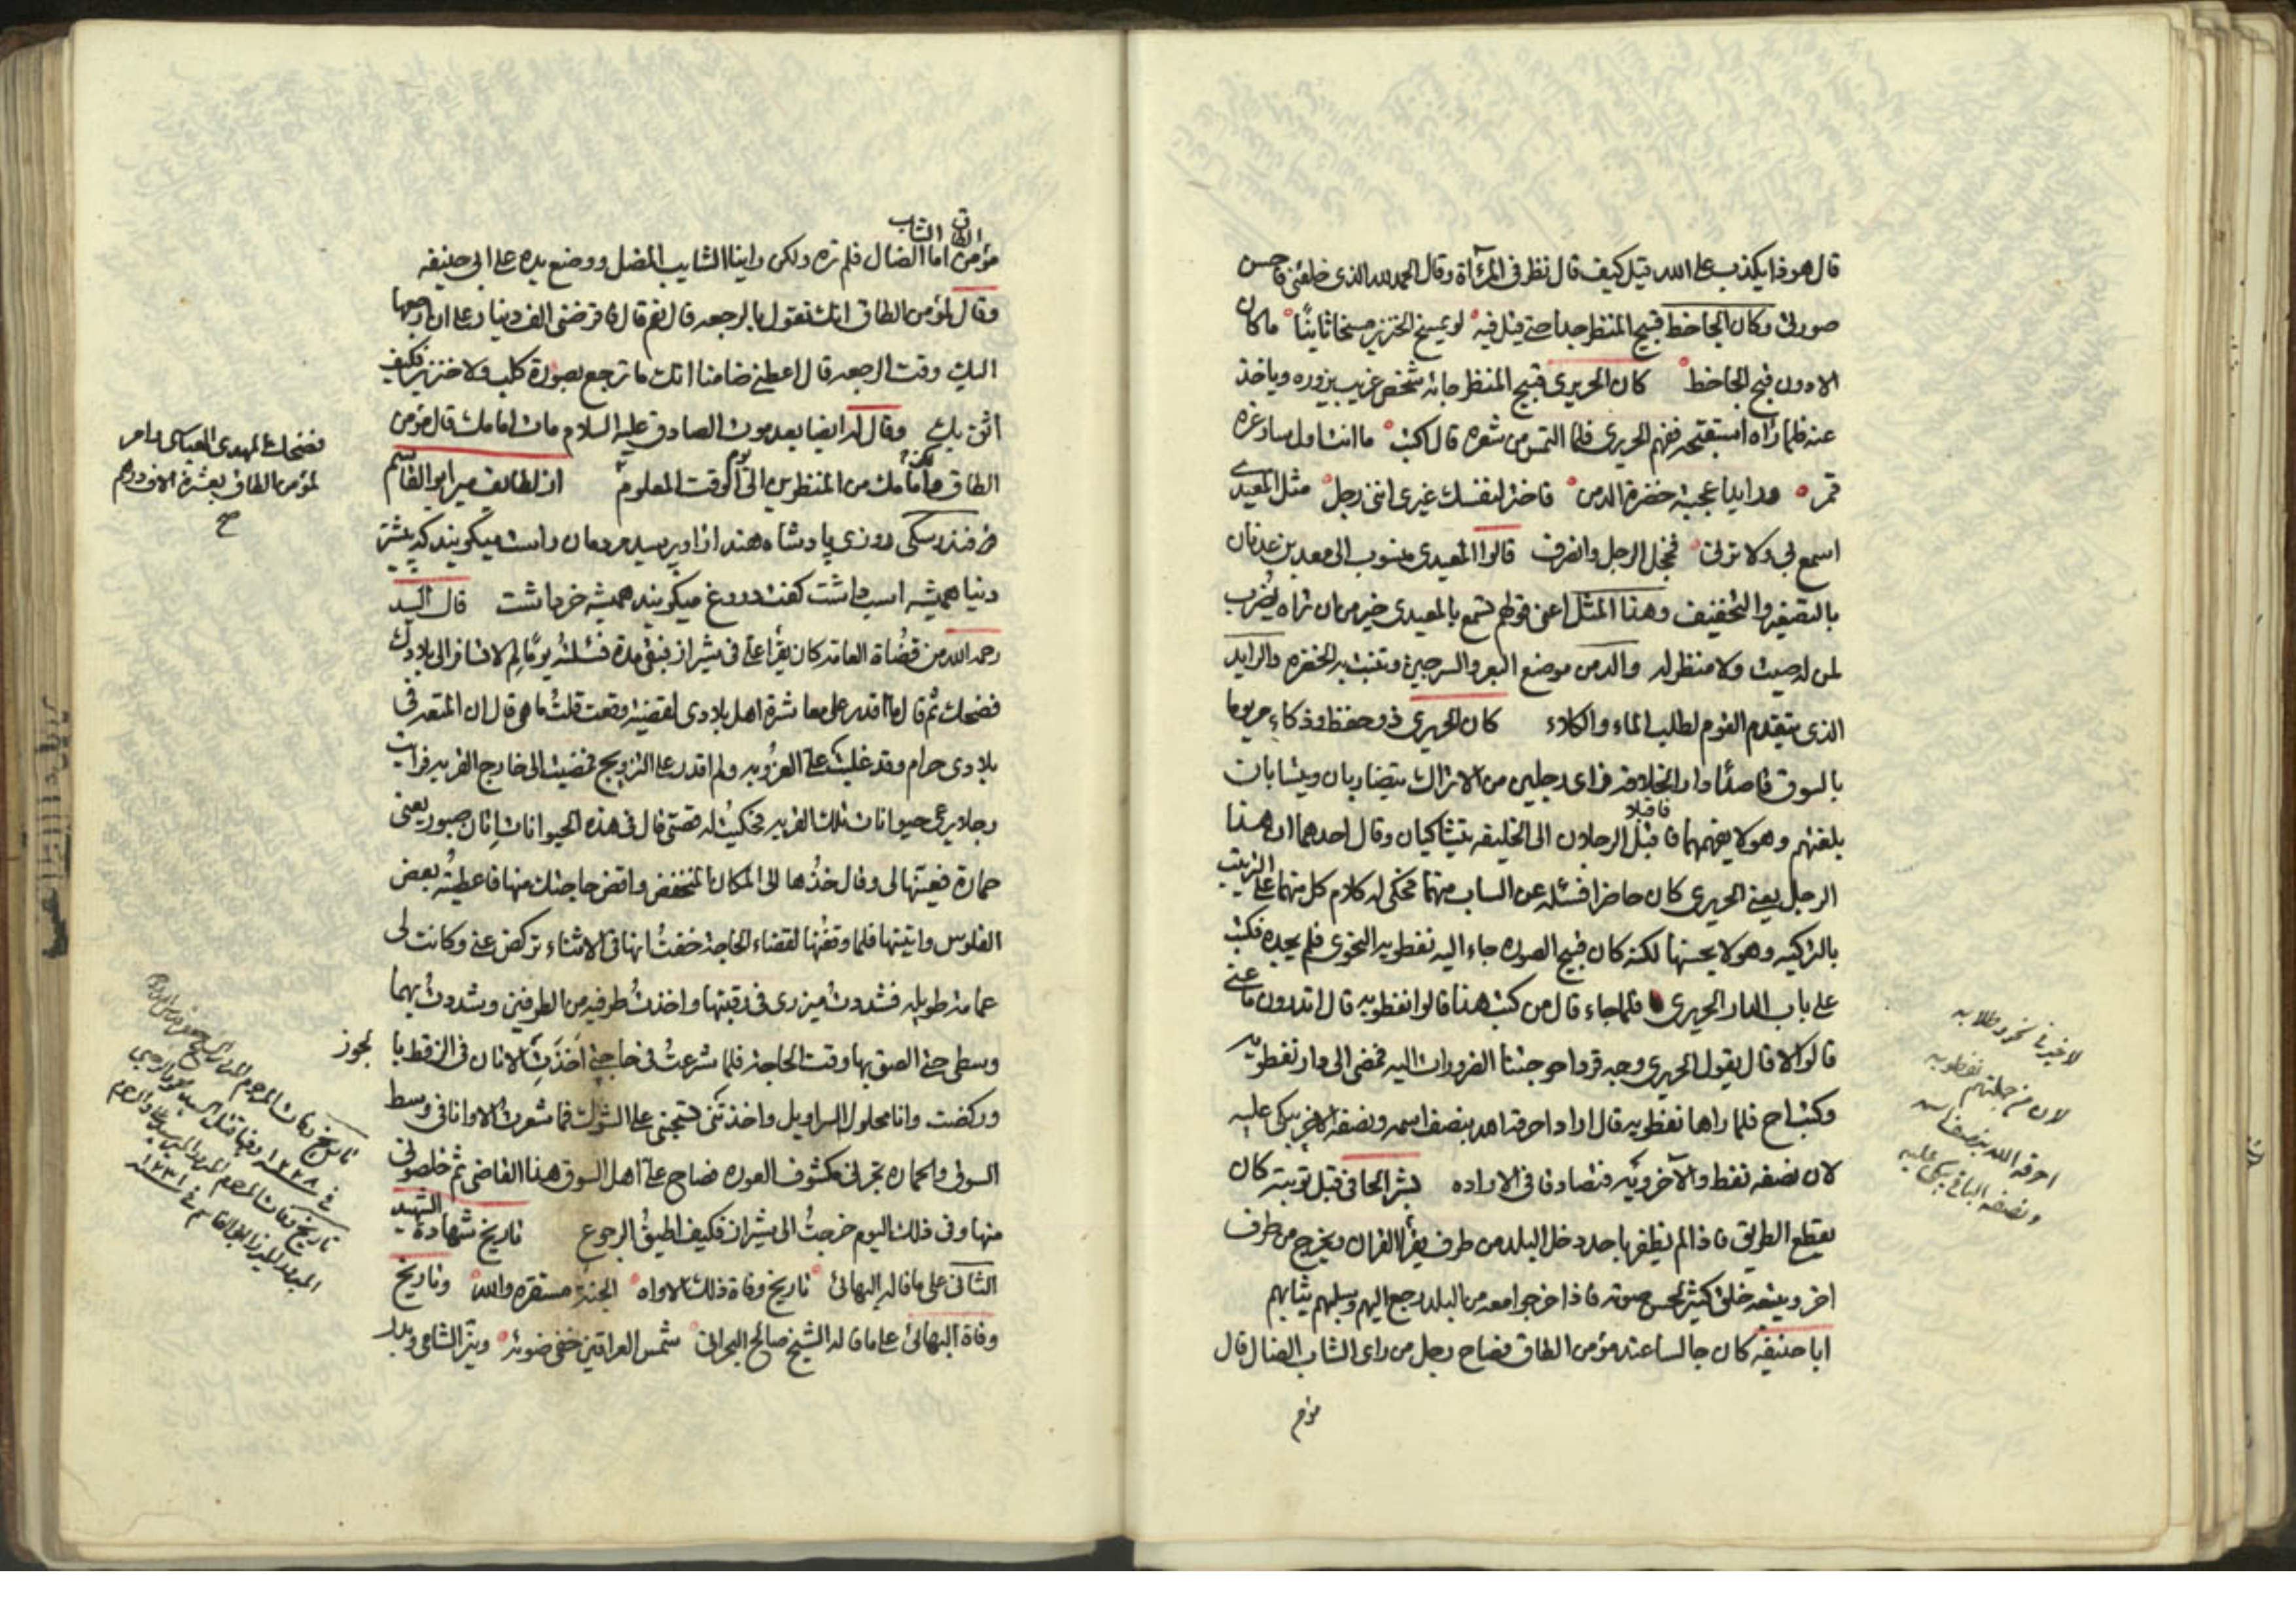 قال هوذا يكذب على الله قيل كيف قال نظر في المرآة وقال الحمد لله الذي خلقني فاحسن
صورتي وكان الجاحظ قبيح المنظر جدا حتى قيل فيه لو يمسخ الخنزير مسخا ثانيًا ما كان
الا دون قبح الجاحظ كان الحريري قبيح المنظر جائه شخص غريب يزوره وياخذ
عنه فلما راه استقبحه ففهم الحريري فلما التمس من شعره قال اكتب ما انت اول سار غره
قمر ورايدا عجبته خضرة الدمن فاختر لنفسك غيري انني رجل مثل المعيدي
اسمع بي ولا ترني فخجل الرجل وانصرف قالوا المعيدي منسوب الى معد بن عدنان
بالتصغير والتخفيف وهذا المثل اعني قولهم تسمع بالمعيدي خير من ان تراه يضرب
لمن له صيت ولا منظر له والدمن موضع البعر والسرجين وتنبت به الخضره والرايد
الذي يتقدم القوم لطلب الماء والكلاء كان الحريري ذو حفظ وذكاء مر يوما
بالسوق قاصدًا دار الخلافه فراى رجلين من الاتراك يتضاربان ويتسابان
فاقبلا
بلغتهم وهو لا يفهمهما فاقبل الرجلان الى الخليفه يتشاكيان وقال احدهما ان هذا
الرجل يعني الحريري كان حاضرا فسئله عن الساب منهما فحكى له كلام كل منهما على الترتيب
بالتركيه وهو لا يحسنها لكنه كان قبيح الصوره جاء اليه نفطويه النحوي فلم يجده فكتب
على باب الدار الحريري فلما جاء قال من كتب هذا قالوا نفطويه قال اتدرون ما عنى
قالوا لا قال يقول الحريري وجه قرد احوجتنا الضرورات اليه فمضى الى دار نفطويه
وكتب اح فلما راها نفطويه قال اراد احرقه الله بنصف اسمه ونصفه الاخر يبكي عليه
لان نصفه نفط والآخر ويه فتصادفا في الاراده بشر الحافي قبل توبته كان
يقطع الطريق فاذا لم يظفر باحد دخل البلد من طرف يقرأ القران ويخرج من طرف
اخر ويتبعه خلق كثير لحسن صوته فاذا خرجوا معه من البلد رجع اليهم وسلبهم ثيابهم
ابا حنيفه كان جالسا عند مؤمن الطاق فصاح رجل من راى الشاب الضال قال
مؤمن
لان من جملتهم نفطويه
احرقه الله بنصف اسمه
ونصفه الباقي يبكي عليه
الطاق الشاب
مؤمن اما الضال فلم نره ولكن راينا الشايب المضل ووضع يده على ابي حنيفه
وقال لمؤمن الطاق انك تقول بالرجعه قال نعم قال فاقرضني الف دينار على ان ارجعها
اليك وقت الرجعه قال اعطني ضامنا انك ما ترجع بصورة كلب ولا خنزير فكيف
اثق بك وقال له ايضا بعد موت الصادق عليه السلام مات امامك قال مؤمن
الطاق وامامك من المنظرين الى يوم الوقت المعلوم از لطايف مير ابو القاسم
فندرسكى روزى پادشاه هند از او پرسيد مردمان راست ميگويند كه پيشتر
دنيا هميشه اسب داشت گفت دروغ ميگويند هميشه خر داشت قال السيد
رحمه الله من قضاة العامه كان يقرأ علي في شيراز فبقي مدة فسئلته يومًا لم لا تسافر الى بلادك
فضحك ثم قال لا اقدر على معاشرة اهل بلادي لقضية وقعت قلت ما هي قال ان المتعه في
بلادي حرام وقد غلبت علي العزوبه ولم اقدر على التزويج فمضيت الى خارج القريه فرايت
رجلا يرعى حيوانات تلك القريه فحكيت له قصتي قال في هذه الحيوانات اتان صبور يعني
حمارة فعينها لي وقال خذها الى المكان المنخفض واقض حاجتك منها فاعطيته بعض
الفلوس واتيتها فلما وقفتها لقضاء الحاجة خفت انها في الاثناء تركض عني وكانت لي
عمامة طويله فشددت ميزري في رقبتها واخذت طرفيه من الطرفين وشددت بهما
وسطي حتى الصق بها وقت الحاجة فلما شرعت في حاجتي اخذت الاتان في الزقطيا
وركضت وانا محلول السراويل واخذتني تسحبني على الشوك فما شعرت الا وانا في وسط
السوق والحماره تجرني مكشوف العوره فصاح علي اهل السوق هذا القاضي ثم خلصوني
منها وفي ذلك اليوم خرجت الى شيراز فكيف اطيق الرجوع تاريخ شهادة الشهيد
الثاني على ما قاله البهائي تاريخ وفاة ذلك الاواه الجنة مستقره والله وتاريخ
وفاة البهائي على ما قاله الشيخ صالح البحراني شمس العراقين خفى ضوئه ونير الشامي وبدر
فضحك المهدي العباسي وامر
لمؤمن الطاق بعشرة الاف درهم
صح